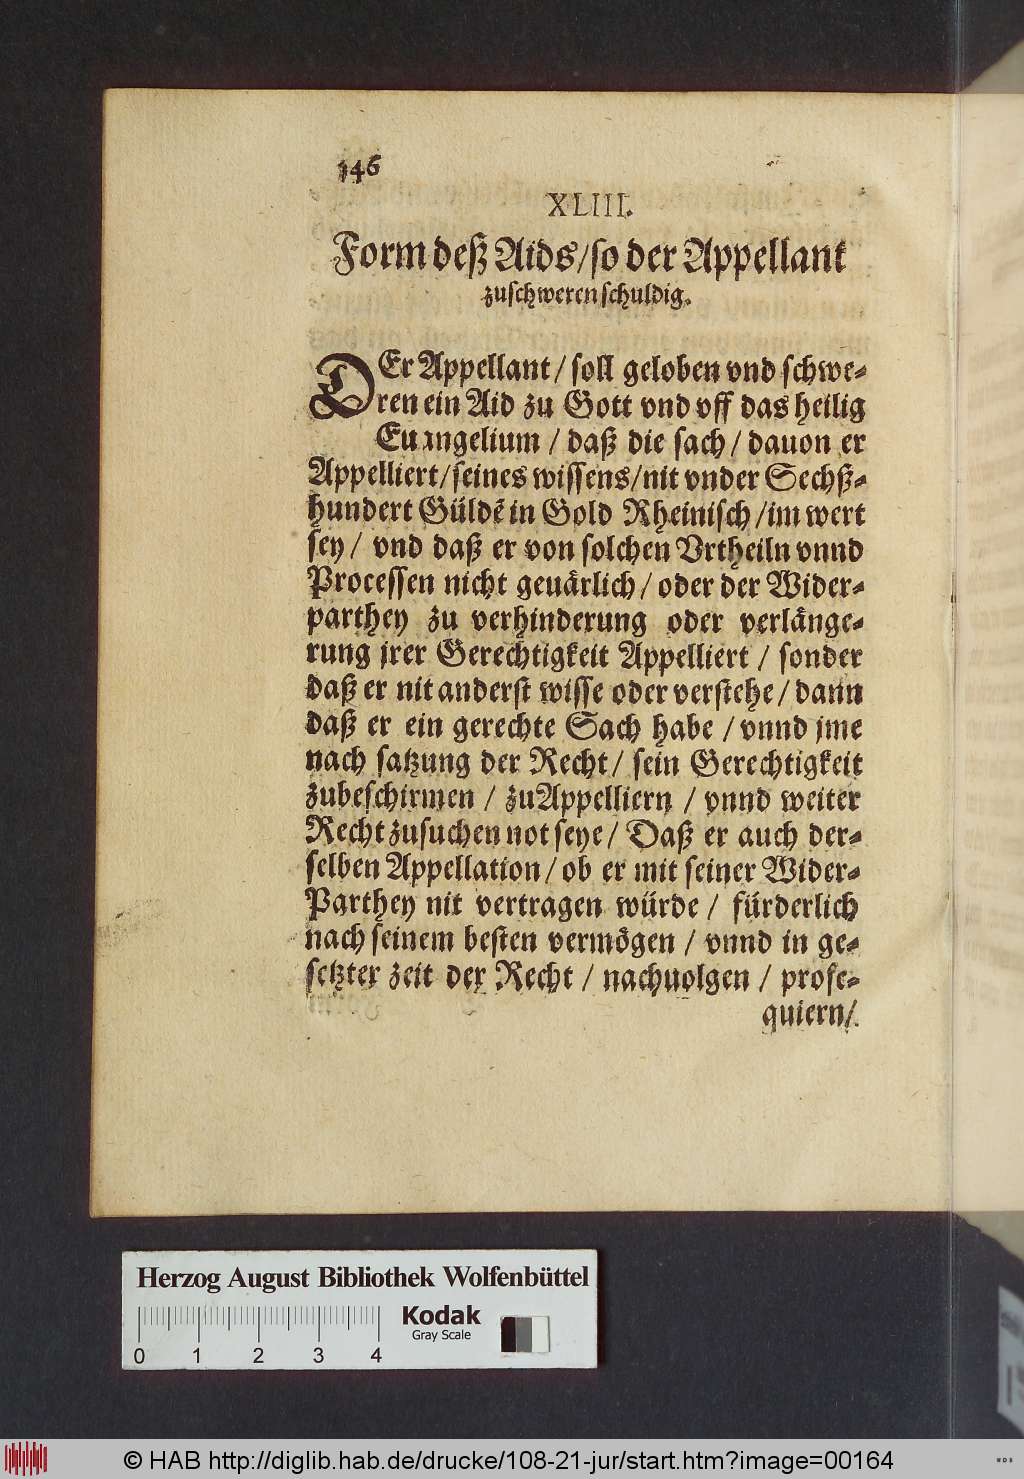 146
XLIII.
Form deß Aids/so der Appellant
zuschweren schuldig.
DEr Appellant/ soll geloben vnd schwe-
ren ein Aid zu Gott vnd vff das heilig
Euangelium / daß die sach / dauon er
Appelliert/seines wissens/nit vnder Sechß-
hundert Güldē in Gold Rheinisch /im wert
sey / vnd daß er von solchen Vrtheiln vnnd
Processen nicht geuårlich / oder der Wider-
parthey zu verhinderung oder verlånge-
rung jrer Gerechtigkeit Appelliert / sonder
daß er nit anderst wisse oder verstehe / dann
daß er ein gerechte Sach habe / vnnd jme
nach satzung der Recht / sein Gerechtigkeit
zubeschirmen / zuAppelliern / vnnd weiter
Recht zusuchen not seye / Daß er auch der-
selben Appellation / ob er mit seiner Wider-
Parthey nit vertragen würde / fürderlich
nach seinem besten vermögen / vnnd in ge-
setzter zeit der Recht / nachuolgen / prose-
quiern/
Herzog August Bibliothek Wolfenbüttel
Kodak
Gray Scale
0 1 2 3 4
© HAB http://diglib.hab.de/drucke/108-21-jur/start.htm?image=00164